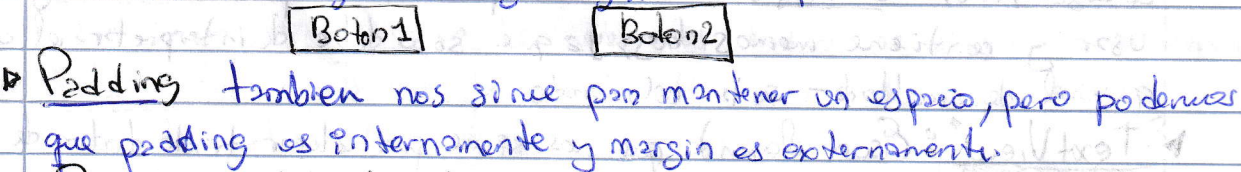 Boton1 Boton2
Padding tambien nos sirve para mantener un espacio, pero podemos
que padding es internamente y margin es externamente.